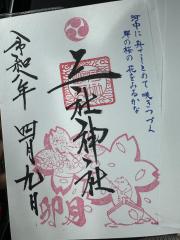 河中に 舟さしとめて 咲きつづく
岸の桜の 花をみるかな
三社神社
令和八年 四月九日
卯月